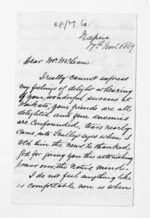 Napier
17th Novr 1869
Dear Mr McLean
I really cannot express
my feelings of delight at hearing
of your wonderful success at
Waikato, your friends are all
delighted and your enemies
are confounded, tears nearly
came into eyes when I
told him the news, he thanked
God for giving you this astonishing
power over the Native mind.
I do not feel anything like
as comfortable now as when